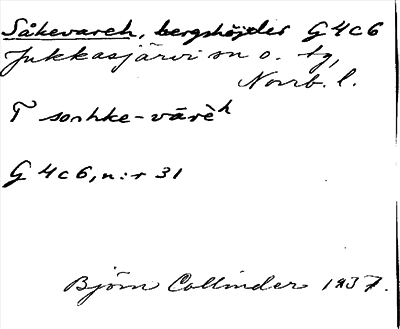 Såkevareh, bergshöjder G 4 c 6
Jukkasjärvi sn o. tg,
Norrb. l.
T sorhke-vārèh
G 4 c 6, n:r 31
Björn Collinder 1937.